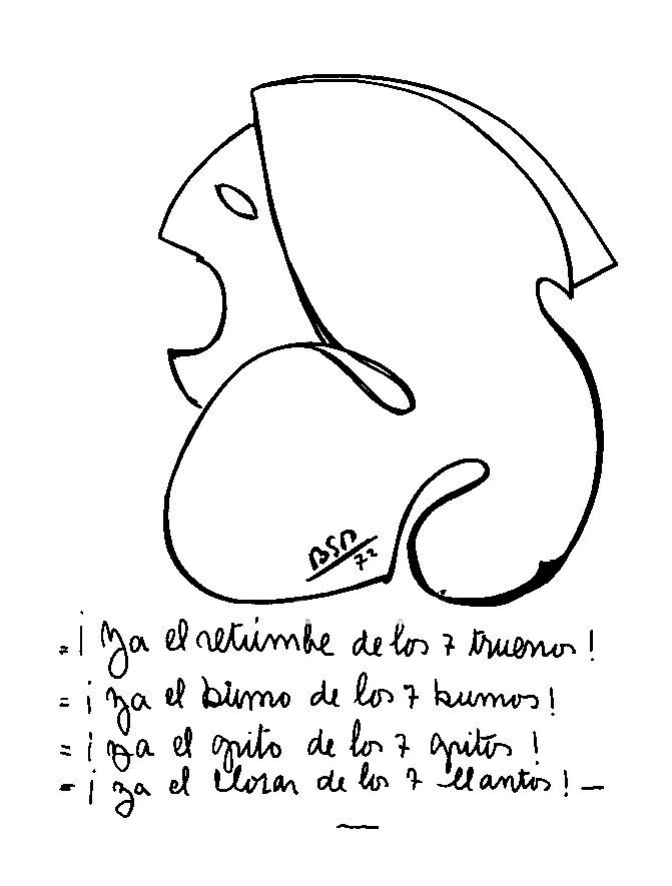 BSD
72
=¡ Ya el retúmbe de los 7 truenos!
=¡ ya el búmo de los 7 bumos!
=¡ ya el grito de los 7 gritos!
=¡ ya el llorar de los 7 llantos! —